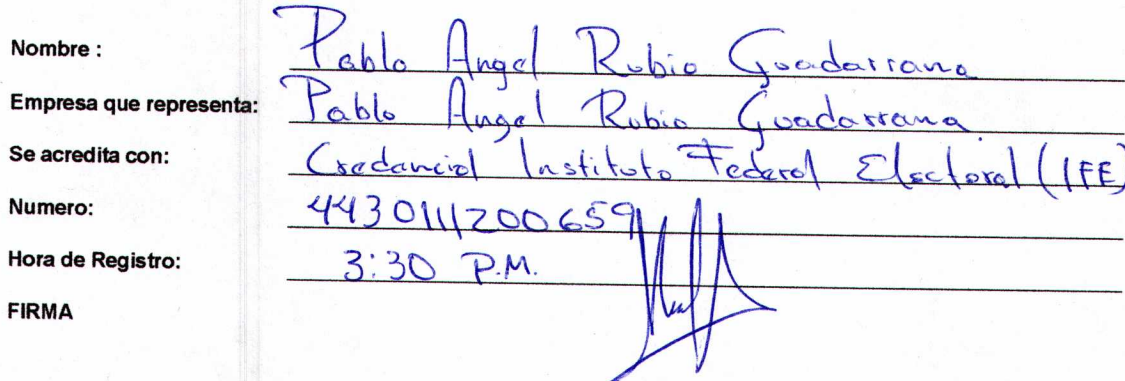 Nombre : Pablo Angel Rubio Guadarrama
Empresa que representa: Pablo Angel Rubio Guadarrama
Se acredita con: Credencial Instituto Federal Electoral (IFE)
Numero: 4430111200659
Hora de Registro: 3:30 P.M.
FIRMA